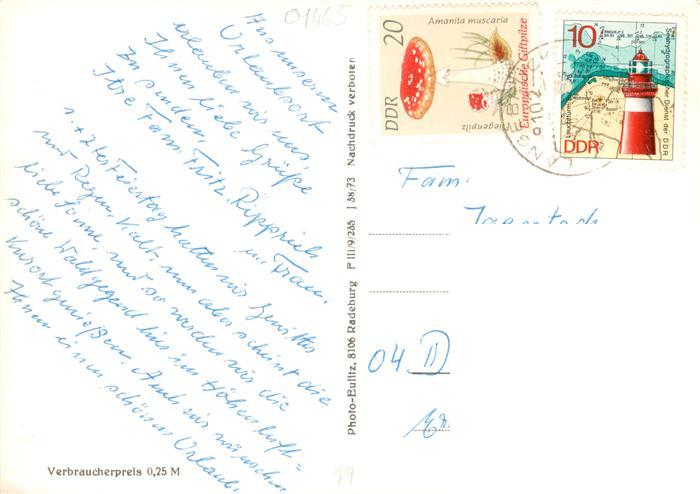 01465
Aus unserem
Urlaubsort
erlauben wir uns
Ihnen liebe Grüße
zu senden,
Ihre Fam. Fritz
u. Frau.
1. + 2. Feiertag hatten wir Gewitter
und Regen, Kalt, nun aber scheint die
liebe Sonne und so werden wir die
schöne Waldgegend hier im Höhenluft=
Kurort genießen. Auch wir wünschen
Ihnen einen schönen Urlaub.
Verbraucherpreis 0,25 M
Photo-Eulitz, 8106 Radeburg P III/9/285 J 38/73 Nachdruck verboten
DDR 20
Amanita muscaria
Fliegenpilz
Europäische Giftpilze
10
Seehydrographischer Dienst der DDR
DDR
9102
Fam.
04 II
99